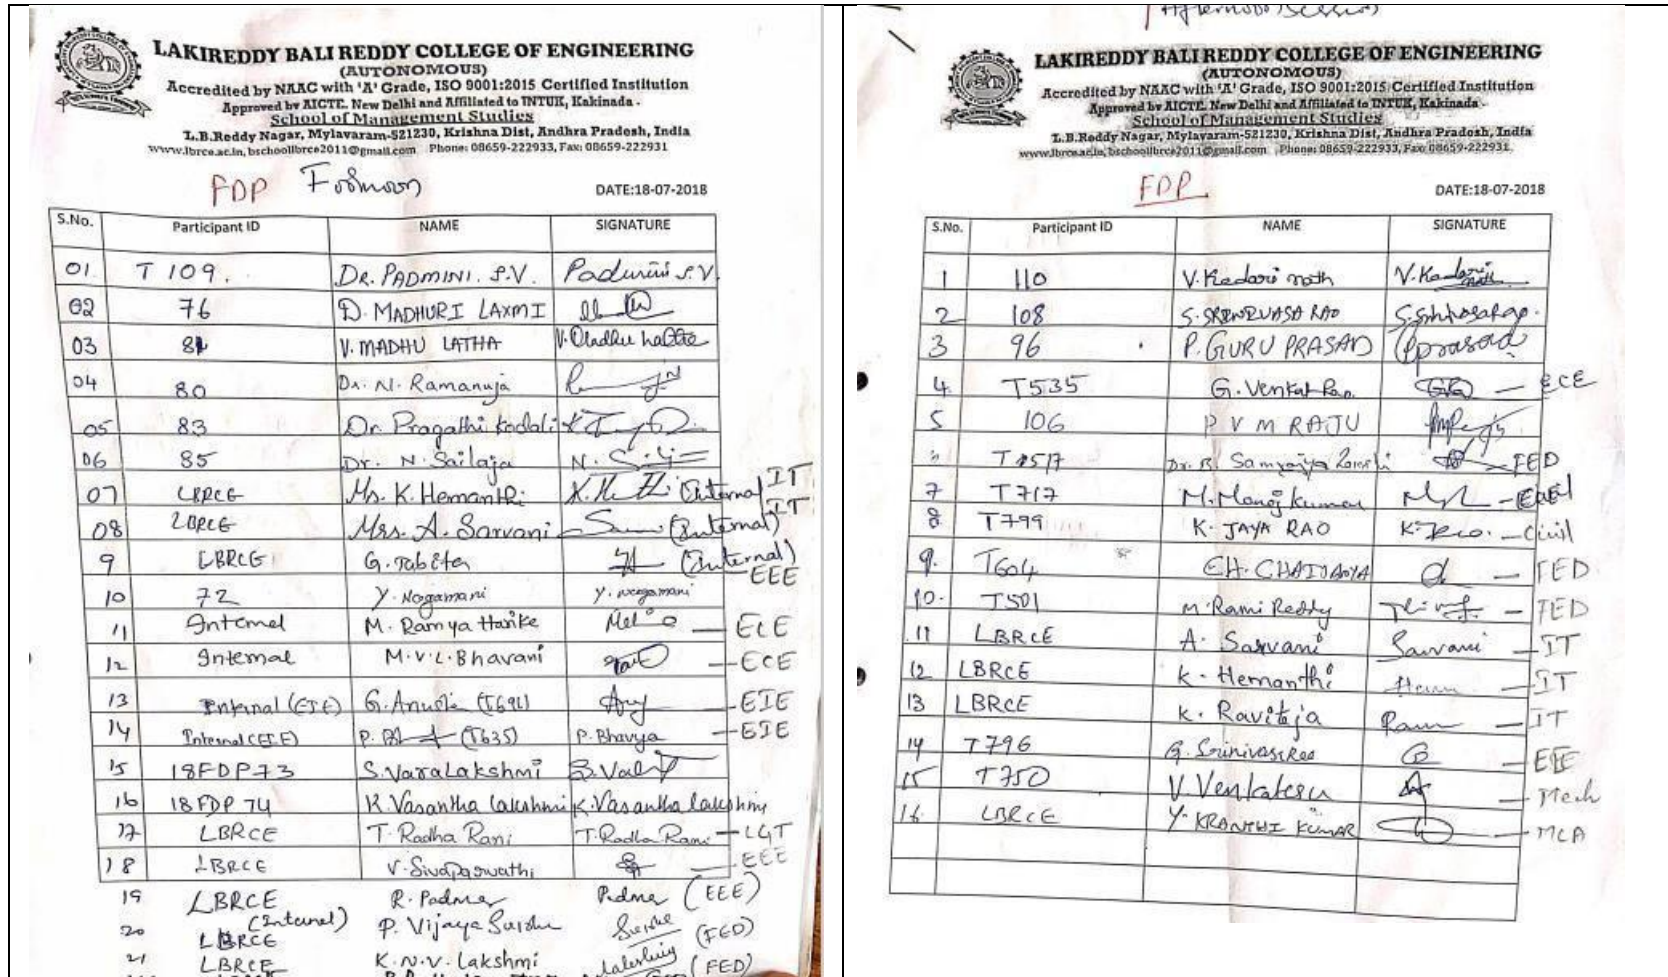 LAKIREDDY BALI REDDY COLLEGE OF ENGINEERING
(AUTONOMOUS)
Accredited by NAAC with 'A' Grade, ISO 9001:2015 Certified Institution
Approved by AICTE. New Delhi and Affiliated to JNTUK, Kakinada.
School of Management Studies
L.B.Reddy Nagar, Mylavaram-521230, Krishna Dist, Andhra Pradesh, India
www.lbrce.ac.in, bschoollbrce2011@gmail.com Phone: 08659-222933, Fax: 08659-222931
FDP
DATE:18-07-2018
S.No. Participant ID NAME SIGNATURE
01. T 109. DR. PADMINI. S.V. Padmini S.V.
02 76 D. MADHURI LAXMI
03 V. MADHU LATHA V. Madhu Latha
04 80 Dr. N. Ramanuja
05 83 Dr. Pragathi Kodali
06 85 Dr. N. Sailaja
07 LBRCE Ms. K. Hemanthi (Internal) IT
08 LBRCE Mrs. A. Sarvani (Internal) IT
9 LBRCE G. Tabita (Internal) EEE
10 72 Y. Nagamani Y. Nagamani
11 Internal M. Ramya Harike ECE
12 Internal M.V.L. Bhavani ECE
13 Internal (EIE) G. Anusha EIE
14 Internal (EIE) (T635) P. Bhavya EIE
15 18FDP73 S. VaraLakshmi
16 18FDP 74 K. Vasantha Lakshmi K. Vasantha Lakshmi
17 LBRCE T. Radha Rani T. Radha Rani
18 LBRCE V. Sivaparvathi EEE
19 LBRCE R. Padma Padma (EEE)
(Internal)
20 LBRCE P. Vijaya (FED)
21 LBRCE K.N.V. Lakshmi (FED)
Afternoon Session
LAKIREDDY BALI REDDY COLLEGE OF ENGINEERING
(AUTONOMOUS)
Accredited by NAAC with 'A' Grade, ISO 9001:2015 Certified Institution
Approved by AICTE. New Delhi and Affiliated to JNTUK, Kakinada.
School of Management Studies
L.B.Reddy Nagar, Mylavaram-521230, Krishna Dist, Andhra Pradesh, India
www.lbrce.ac.in, bschoollbrce2011@gmail.com Phone: 08659-222933, Fax: 08659-222931.
FDP
DATE:18-07-2018
S.No. Participant ID NAME SIGNATURE
1 110 V. Kedari nath V. Kedari nath
2 108 S. SRINIVASA RAO
3 96 P. GURU PRASAD
4. T535 G. Venkat Rao. ECE
5 106 P V M RAJU
Dr. B. FED
7 T717 M. Manoj Kumar
8 T799 K. JAYA RAO Civil
9. T604 CH. CHAITANYA FED
10. T501 M. Rami Reddy FED
11 LBRCE A. Sarvani Sarvani IT
12 LBRCE K. Hemanthi IT
13 LBRCE K. Raviteja IT
14 T796 EEE
15 T750 Mech
16. LBRCE Y. KRANTHI KUMAR MCA